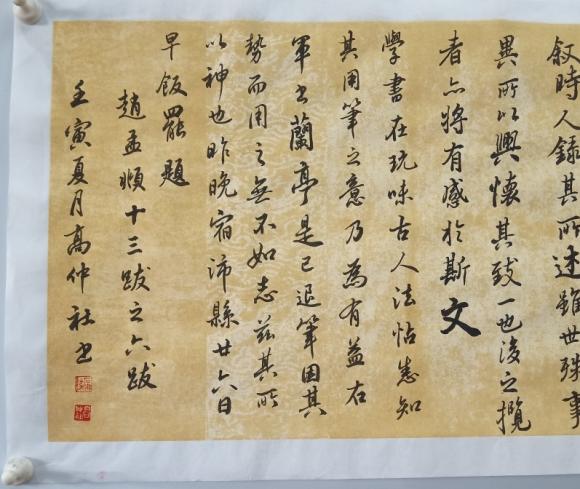 叙時人録其所述雖世殊事
異所以興懷其致一也後之攬
者亦将有感於斯文
學書在玩味古人法帖悉知
其用筆之意乃為有益右
軍書蘭亭是已退筆因其
勢而用之無不如志兹其所
以神也昨晚宿沛縣廿六日
早飯罷題
趙孟頫十三跋之六跋
壬寅夏月高仲社書